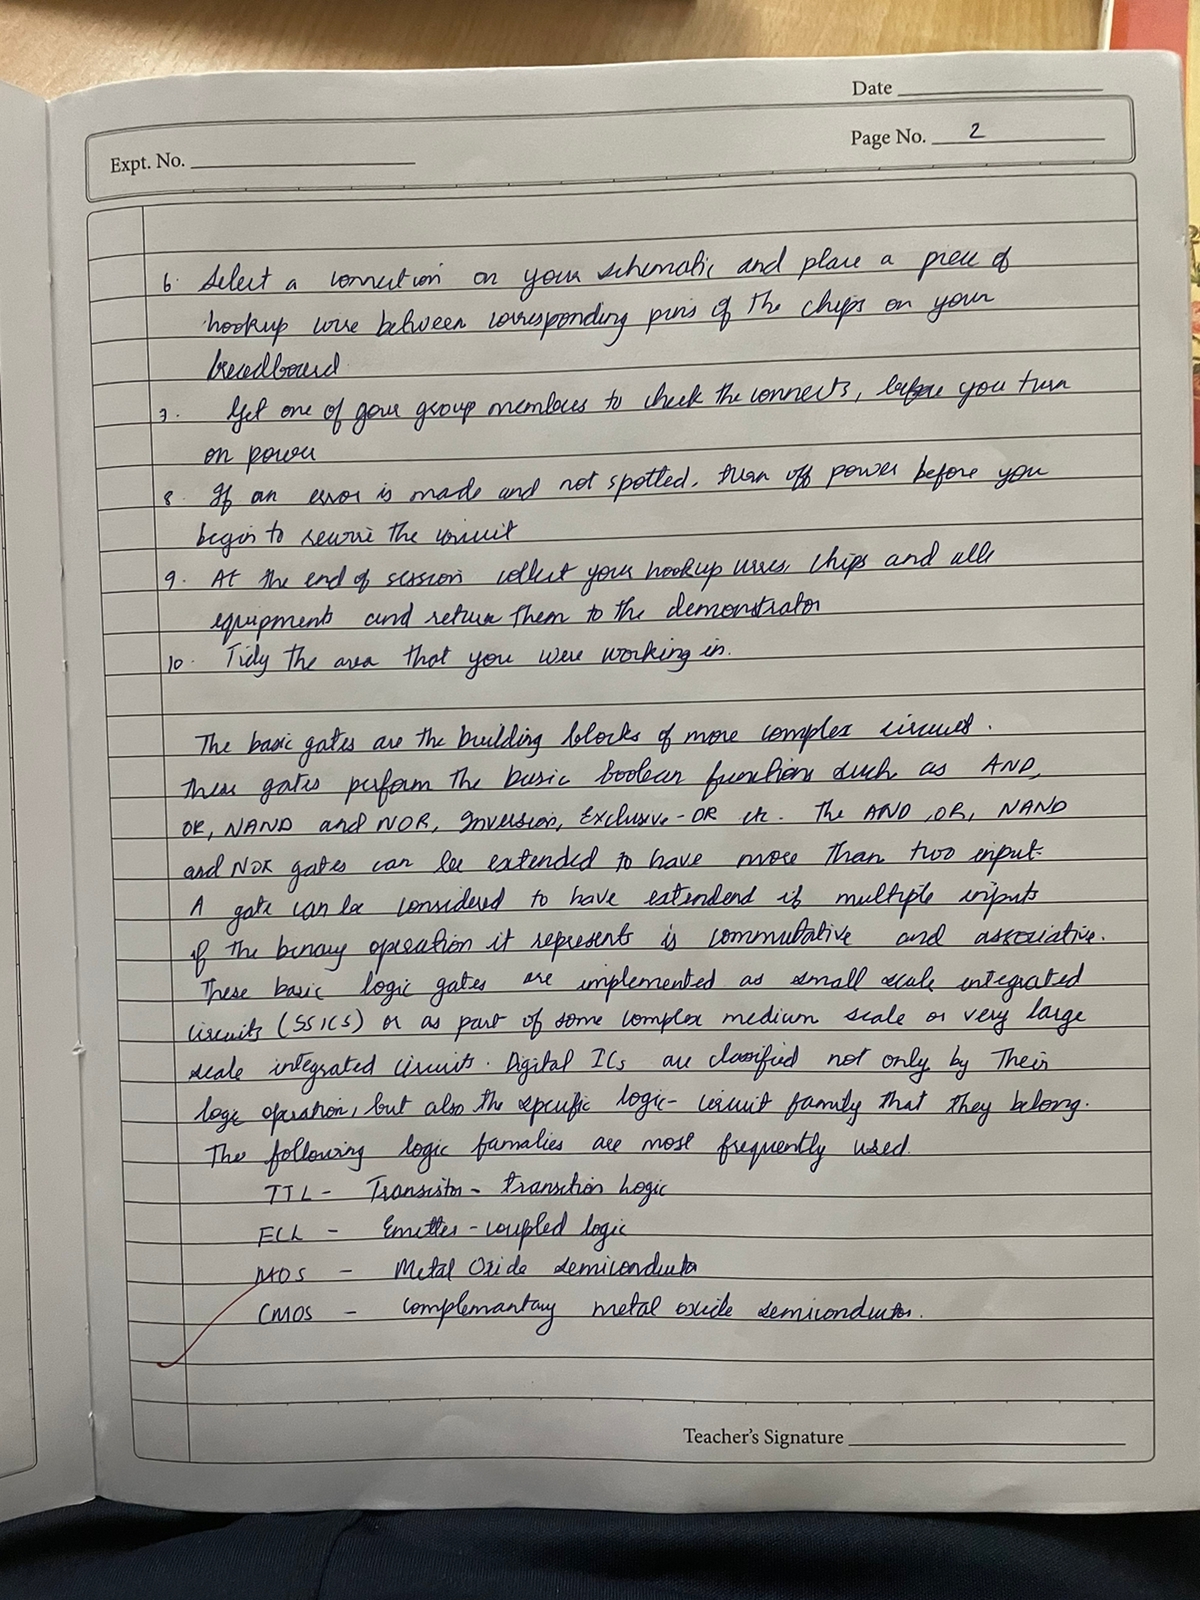 Date
Page No. 2
Expt. No.
6. Select a connection on your schematic and place a piece of
hookup wire between corresponding pins of the chips on your
breadboard
7. Get one of your group members to check the connects, before you turn
on power
8. If an error is made and not spotted, turn off power before you
begin to rewire the circuit
9. At the end of session collect your hookup wires, chips and all
equipments and return them to the demonstrator
10. Tidy the area that you were working in.
The basic gates are the building blocks of more complex circuits.
These gates perform the basic boolean functions such as AND,
OR, NAND and NOR, Inversion, Exclusive-OR etc. The AND, OR, NAND
and NOR gates can be extended to have more than two input.
A gate can be considered to have extendend if multiple inputs
if the binary operation it represents is commutative and associative.
These basic logic gates are implemented as small scale integrated
circuits (SSICS) or as part of some complex medium scale or very large
scale integrated circuits. Digital ICs are classified not only by their
logic operation, but also the specific logic-circuit family that they belong.
The following logic famalies are most frequently used.
TTL - Transistor - transition Logic
ECL - Emitter-coupled logic
MOS - Metal Oxide semiconductor
CMOS - complemantary metal oxide semiconductor.
Teacher's Signature